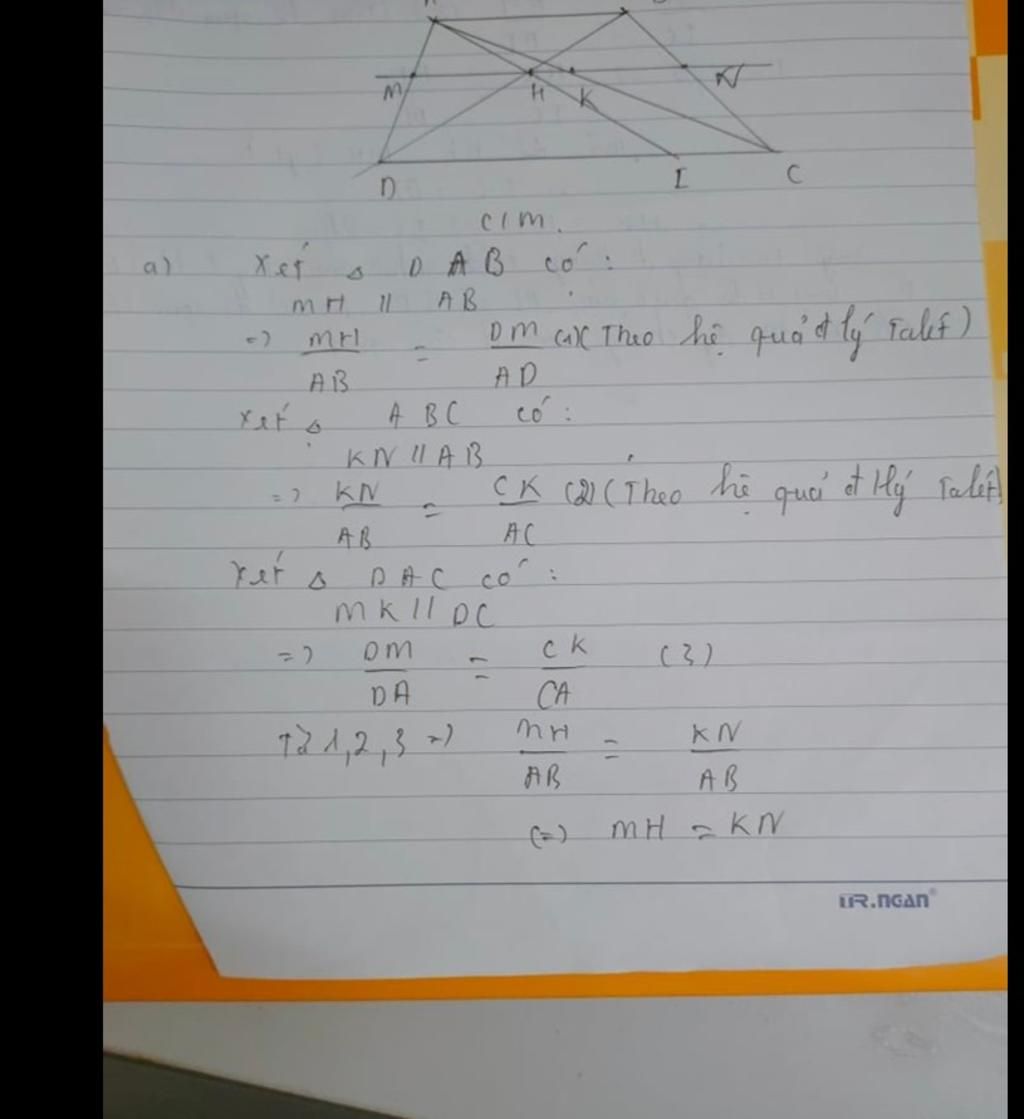 M H K N
D I C
c/m.
a) Xét Δ DAB có:
MH // AB
=> MH/AB = DM/AD (1) (Theo hệ quả đ lý Talet)
Xét Δ ABC có:
KN // AB
=> KN/AB = CK/AC (2) (Theo hệ quả đ lý Talet)
Xét Δ DAC có:
MK // DC
=> DM/DA = CK/CA (3)
Từ 1, 2, 3 => MH/AB = KN/AB
(=) MH = KN
TR.NGAN®